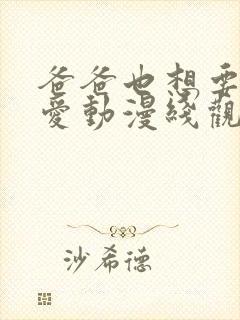 爸爸也想要
愛動漫綫觀
沙希德